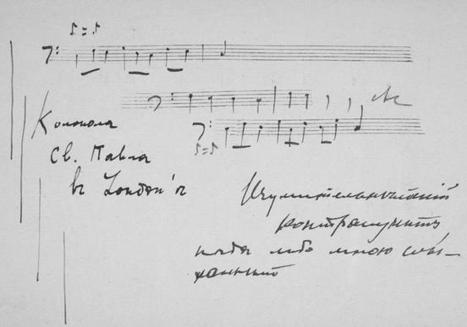 etc
Колокола
Св. Павла
въ London'ѣ
Изумительнѣйшій
контрапунктъ
когда либо мною слы-
ханный